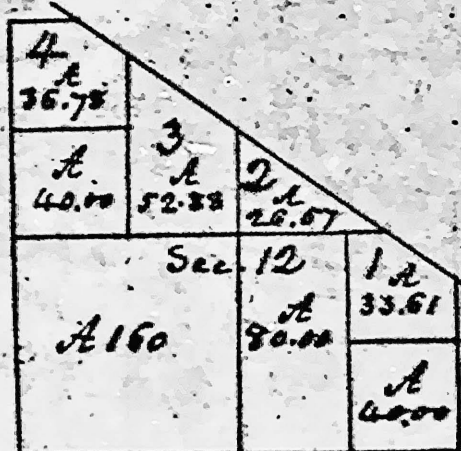 4
A
36.78
A
40.00
3
A
52.88
2
A
26.67
Sec. 12
1 A
33.61
A 160
A
80.00
A
40.00